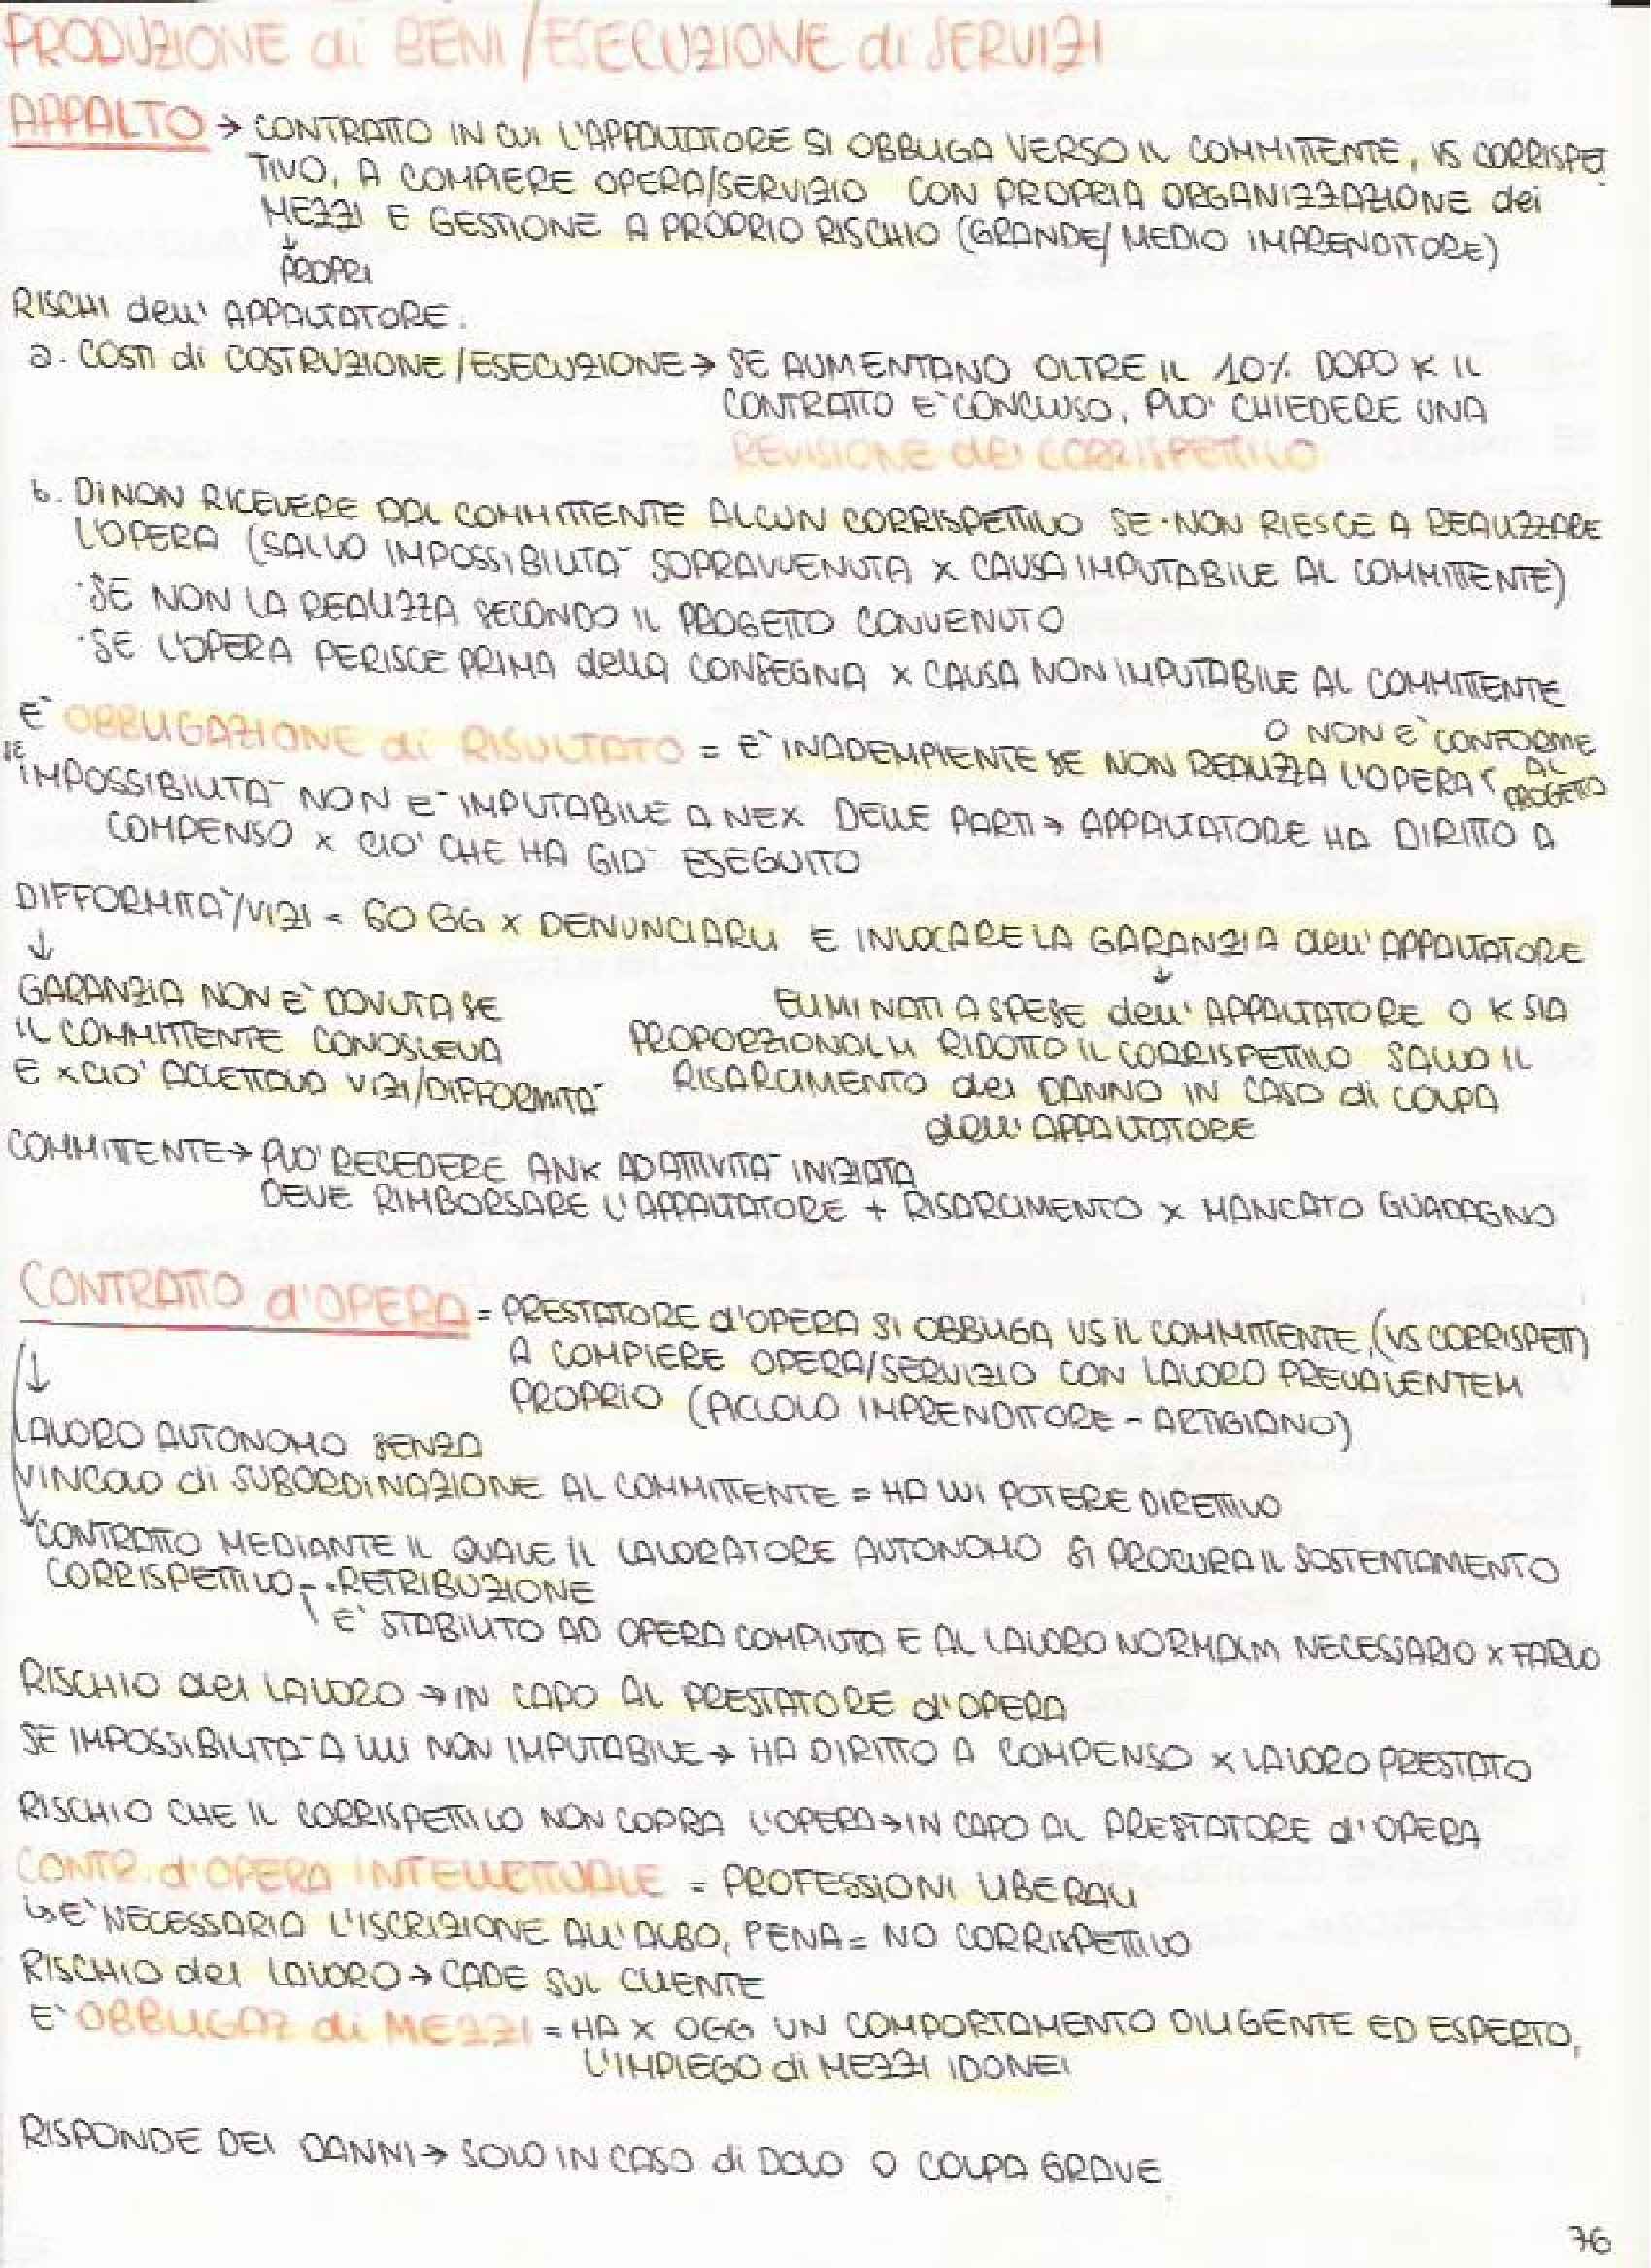 PRODUZIONE di BENI/ESECUZIONE di SERVIZI
APPALTO → CONTRATTO IN CUI L'APPALTATORE SI OBBLIGA VERSO IL COMMITTENTE, VS CORRISPET
TIVO, A COMPIERE OPERA/SERVIZIO CON PROPRIA ORGANIZZAZIONE dei
MEZZI E GESTIONE A PROPRIO RISCHIO (GRANDE/MEDIO IMPRENDITORE)
↓
PROPRI
RISCHI dell' APPALTATORE:
a. COSTI di COSTRUZIONE/ESECUZIONE → SE AUMENTANO OLTRE IL 10% DOPO K IL
CONTRATTO E' CONCLUSO, PUO' CHIEDERE UNA
REVISIONE del CORRISPETTIVO
b. Di NON RICEVERE DAL COMMITTENTE ALCUN CORRISPETTIVO SE · NON RIESCE A REALIZZARE
L'OPERA (SALVO IMPOSSIBILITA' SOPRAVVENUTA x CAUSA IMPUTABILE AL COMMITTENTE)
· SE NON LA REALIZZA SECONDO IL PROGETTO CONVENUTO
· SE L'OPERA PERISCE PRIMA della CONSEGNA x CAUSA NON IMPUTABILE AL COMMITTENTE
E' OBBLIGAZIONE di RISULTATO = E' INADEMPIENTE SE NON REALIZZA L'OPERA O NON E' CONFORME AL PROGETTO
SE IMPOSSIBILITA' NON E' IMPUTABILE A NEX DELLE PARTI → APPALTATORE HA DIRITTO A
COMPENSO x CIO' CHE HA GIA' ESEGUITO
DIFFORMITA'/VIZI < 60 GG x DENUNCIARLI E INVOCARE LA GARANZIA dell' APPALTATORE
↓ ↓
GARANZIA NON E' DOVUTA SE
IL COMMITTENTE CONOSCEVA
E x CIO' ACCETTAVA VIZI/DIFFORMITA'
ELIMINATI A SPESE dell' APPALTATORE O K SIA
PROPORZIONALM RIDOTTO IL CORRISPETTIVO SALVO IL
RISARCIMENTO del DANNO IN CASO di COLPA
dell' APPALTATORE
COMMITTENTE → PUO' RECEDERE ANK AD ATTIVITA' INIZIATA
DEVE RIMBORSARE L'APPALTATORE + RISARCIMENTO x MANCATO GUADAGNO
CONTRATTO d'OPERA = PRESTATORE d'OPERA SI OBBLIGA VS IL COMMITTENTE, (VS CORRISPETT)
A COMPIERE OPERA/SERVIZIO CON LAVORO PREVALENTEM
PROPRIO (PICCOLO IMPRENDITORE - ARTIGIANO)
↓
LAVORO AUTONOMO SENZA
VINCOLO di SUBORDINAZIONE AL COMMITTENTE = HA LUI POTERE DIRETTIVO
CONTRATTO MEDIANTE IL QUALE IL LAVORATORE AUTONOMO SI PROCURA IL SOSTENTAMENTO
CORRISPETTIVO - · RETRIBUZIONE
E' STABILITO AD OPERA COMPIUTA E AL LAVORO NORMALM NECESSARIO x FARLO
RISCHIO del LAVORO → IN CAPO AL PRESTATORE d'OPERA
SE IMPOSSIBILITA' A LUI NON IMPUTABILE → HA DIRITTO A COMPENSO x LAVORO PRESTATO
RISCHIO CHE IL CORRISPETTIVO NON COPRA L'OPERA → IN CAPO AL PRESTATORE d'OPERA
CONTR. d'OPERA INTELLETTUALE = PROFESSIONI LIBERALI
↳ E' NECESSARIA L'ISCRIZIONE ALL'ALBO, PENA = NO CORRISPETTIVO
RISCHIO del LAVORO → CADE SUL CLIENTE
E' OBBLIGAZ di MEZZI = HA x OGG UN COMPORTAMENTO DILIGENTE ED ESPERTO,
L'IMPIEGO di MEZZI IDONEI
RISPONDE DEI DANNI → SOLO IN CASO di DOLO O COLPA GRAVE
76